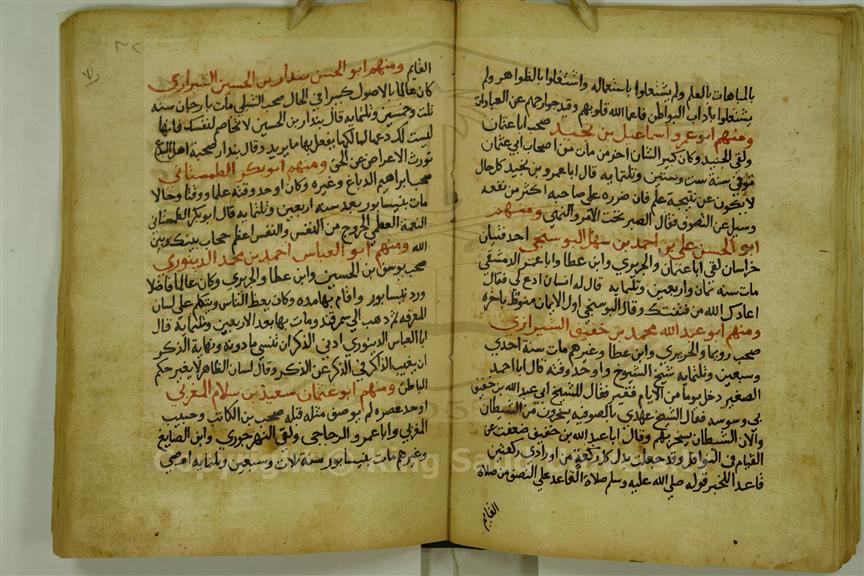 بالمباهات بالعلم ولم يشتغلوا باستعماله واشتغلوا بالظواهر ولم
يشتغلوا باداب البواطن فاعما الله قلوبهم وقيد جوارحهم عن العبادات
ومنهم ابو عمرو اسماعيل بن نجيد صحب ابا عثمان
ولقي الجنيد وكان كبير الشان اخر من مات من اصحاب ابي عثمان
توفي سنة ست وستين وثلثمايه قال ابا عمرو بن نجيد كل حال
لا يكون عن نتيجة علم فان ضرره علي صاحبه اكثر من نفعه
وسيل عن التصوف فقال الصبر تحت الامر والنهي ومنهم
ابو الحسن علي بن احمد بن سهل البوسنجي احد فتيان
خراسان لقي ابا عثمان والجريري وابن عطا وابا عمر الدمشقي
مات سنه ثمان واربعين وثلثمايه قال له انسان ادع لي فقال
اعاذك الله من فتنتك وقال البوسنجي اول الايمان منوط باخره
ومنهم ابو عبد الله محمد بن خفيق الشيرازي
صحب رويما والجريري وابن عطا وغيرهم مات سنة احدي
وسبعين وثلثمايه شيخ الشيوخ واوحد وقته قال ابا احمد
الصغير دخل يوما من الايام فقير فقال للشيخ ابي عبد الله بن خفيق
بي وسوسه فقال الشيخ عهدي بالصوفيه يسخرون من الشيطان
والان الشيطان يسخر بهم وقال ابا عبد الله بن خفيق ضعفت عن
القيام في النوافل وقد جعلت بدل كل ركعة من اورادي ركعتين
قاعدا للخبر قوله صلي الله عليه وسلم صلاة القاعد علي النصف من صلاة
القايم
القايم ومنهم ابو الحسن بندار بن الحسين الشيرازي
كان عالما بالاصول كبيرا في الحال صحب الشبلي مات بارجان سنه
ثلث وخمسين وثلثمايه قال بندار بن الحسين لا تخاصم لنفسك فانها
ليست لك دعها لمالكها يفعل بها ما يريد وقال بندار صحبة اهل البدع
تورث الاعراض عن الحق ومنهم ابو بكر الطمستاني
صحب ابراهيم الدباغ وغيره وكان اوحد وقته علما ووقتا وحالا
مات بنيسابور بعد سنه اربعين وثلثمايه قال ابو بكر الطمستاني
النعمة العظمي الخروج من النفس والنفس اعظم حجاب بينك وبين
الله ومنهم ابو العباس احمد بن محمد الدينوري
صحب يوسف ابن الحسين وابن عطا والجريري وكان عالما فاضلا
ورد نيسابور واقام بها مده وكان يعظ الناس ويتكلم علي لسان
المعرفه ثم ذهب الي سمرقند ومات بها بعد الاربعين وثلثمايه قال
ابا العباس الدينوري ادني الذكر ان تنسي ما دونه ونهاية الذكر
ان يغيب الذاكر في الذكر عن الذكر وقال لسان الظاهر لا يغير حكم
الباطن ومنهم ابو عثمان سعيد بن سلام المغربي
اوحد عصره لم يوصف مثله قبله صحب بن الكاتب وحبيب
المغربي وابا عمرو الزجاجي ولقي النهرجوري وابن الصايغ
وغيرهم مات بنيسابور سنة ثلاث وسبعين وثلثمايه اوصي